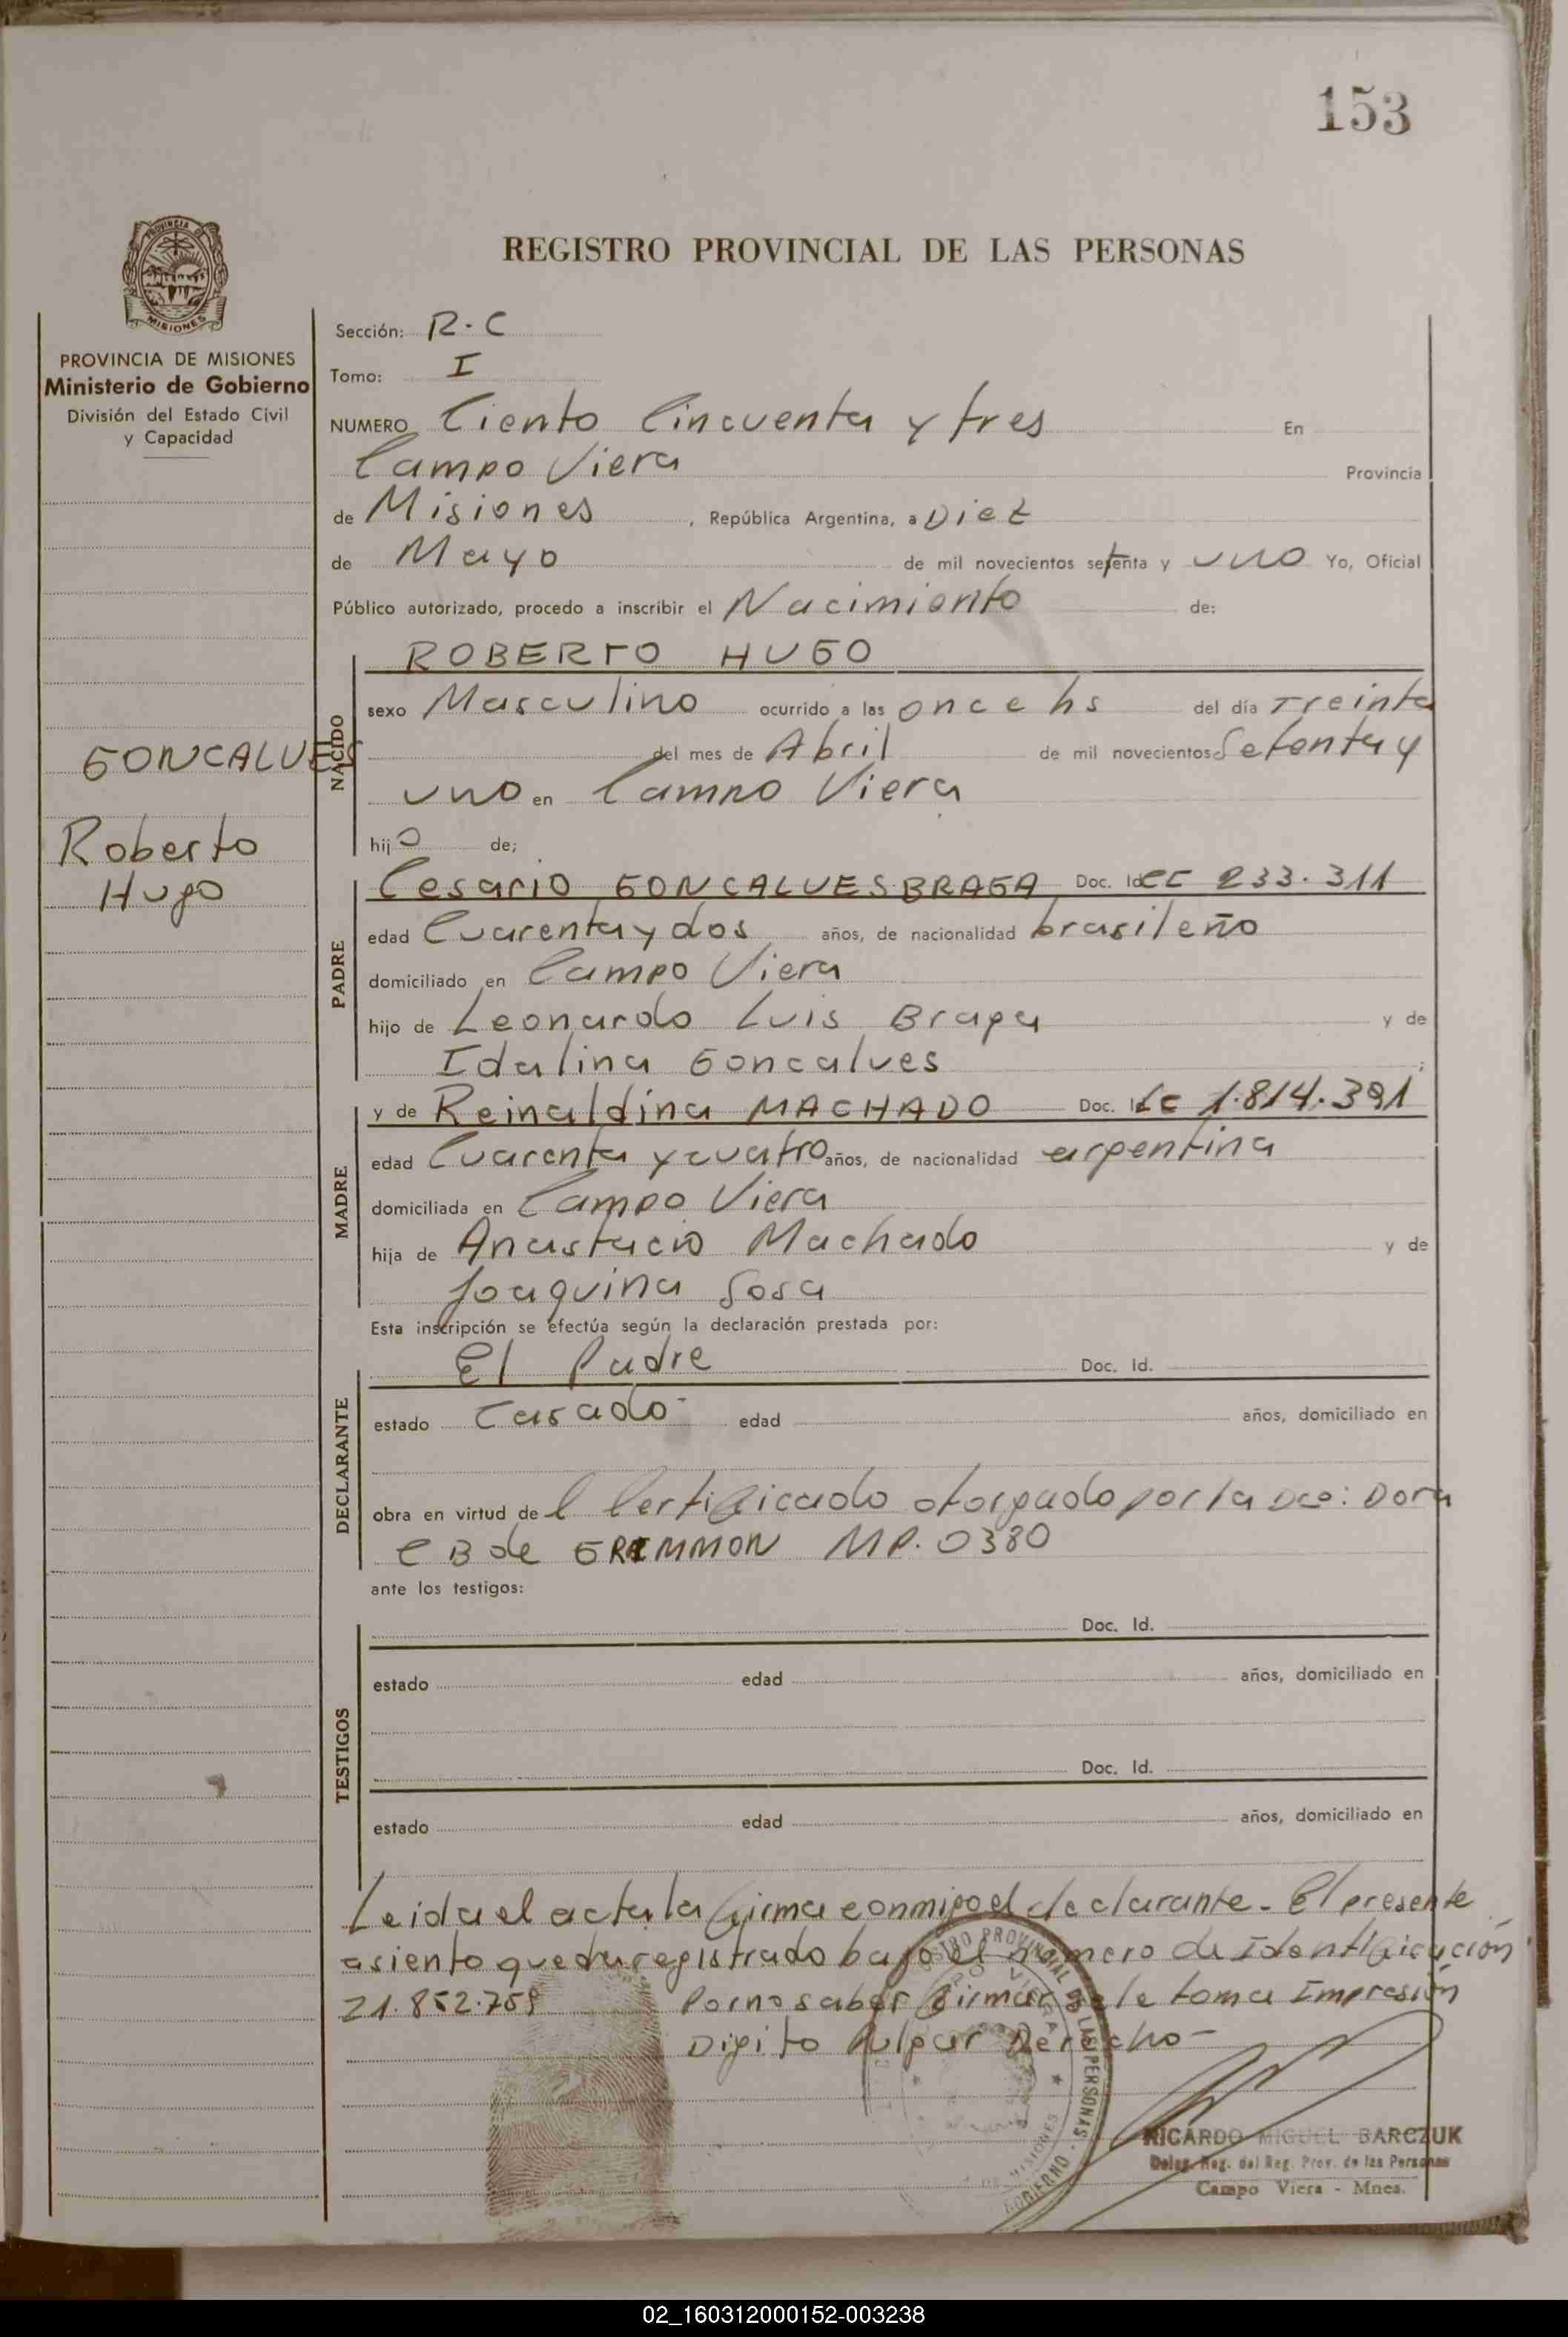 153
PROVINCIA DE
MISIONES
REGISTRO PROVINCIAL DE LAS PERSONAS
PROVINCIA DE MISIONES
Ministerio de Gobierno
División del Estado Civil
y Capacidad
GONCALVES
Roberto
Hugo
Sección: R.C
Tomo: I
NUMERO Ciento Cincuenta y tres En
Campo Viera Provincia
de Misiones, República Argentina, a Diez
de Mayo de mil novecientos setenta y uno Yo, Oficial
Público autorizado, procedo a inscribir el Nacimiento de:
NACIDO
ROBERTO HUGO
sexo Masculino ocurrido a las once hs del día Treinta
del mes de Abril de mil novecientos Setenta y
uno en Campo Viera
hijo de;
PADRE
Cesario GONCALVES BRAGA Doc. Id. CC 233.311
edad Cuarenta y dos años, de nacionalidad brasileño
domiciliado en Campo Viera
hijo de Leonardo Luis Braga y de
Idalina Goncalves ;
MADRE
y de Reinaldina MACHADO Doc. I LC 1.814.391
edad Cuarenta y cuatro años, de nacionalidad argentina
domiciliada en Campo Viera
hija de Anastacio Machado y de
Joaquina Sosa
Esta inscripción se efectúa según la declaración prestada por:
DECLARANTE
El Padre Doc. Id.
estado Casado- edad años, domiciliado en
obra en virtud de l Certificado otorgado por la Dra: Dora
C B de GREMMON MP. 0380
ante los testigos:
TESTIGOS
Doc. Id.
estado edad años, domiciliado en
Doc. Id.
estado edad años, domiciliado en
Leida el acta la firma conmigo el declarante. El presente
asiento queda registrado bajo el número de Identificación
21.852.759 Por no saber firmar se le toma Impresión
Digito Pulgar Derecho-
RICARDO MIGUEL BARCZUK
Deleg. Reg. del Reg. Prov. de las Personas
Campo Viera - Mnes.
02_160312000152-003238